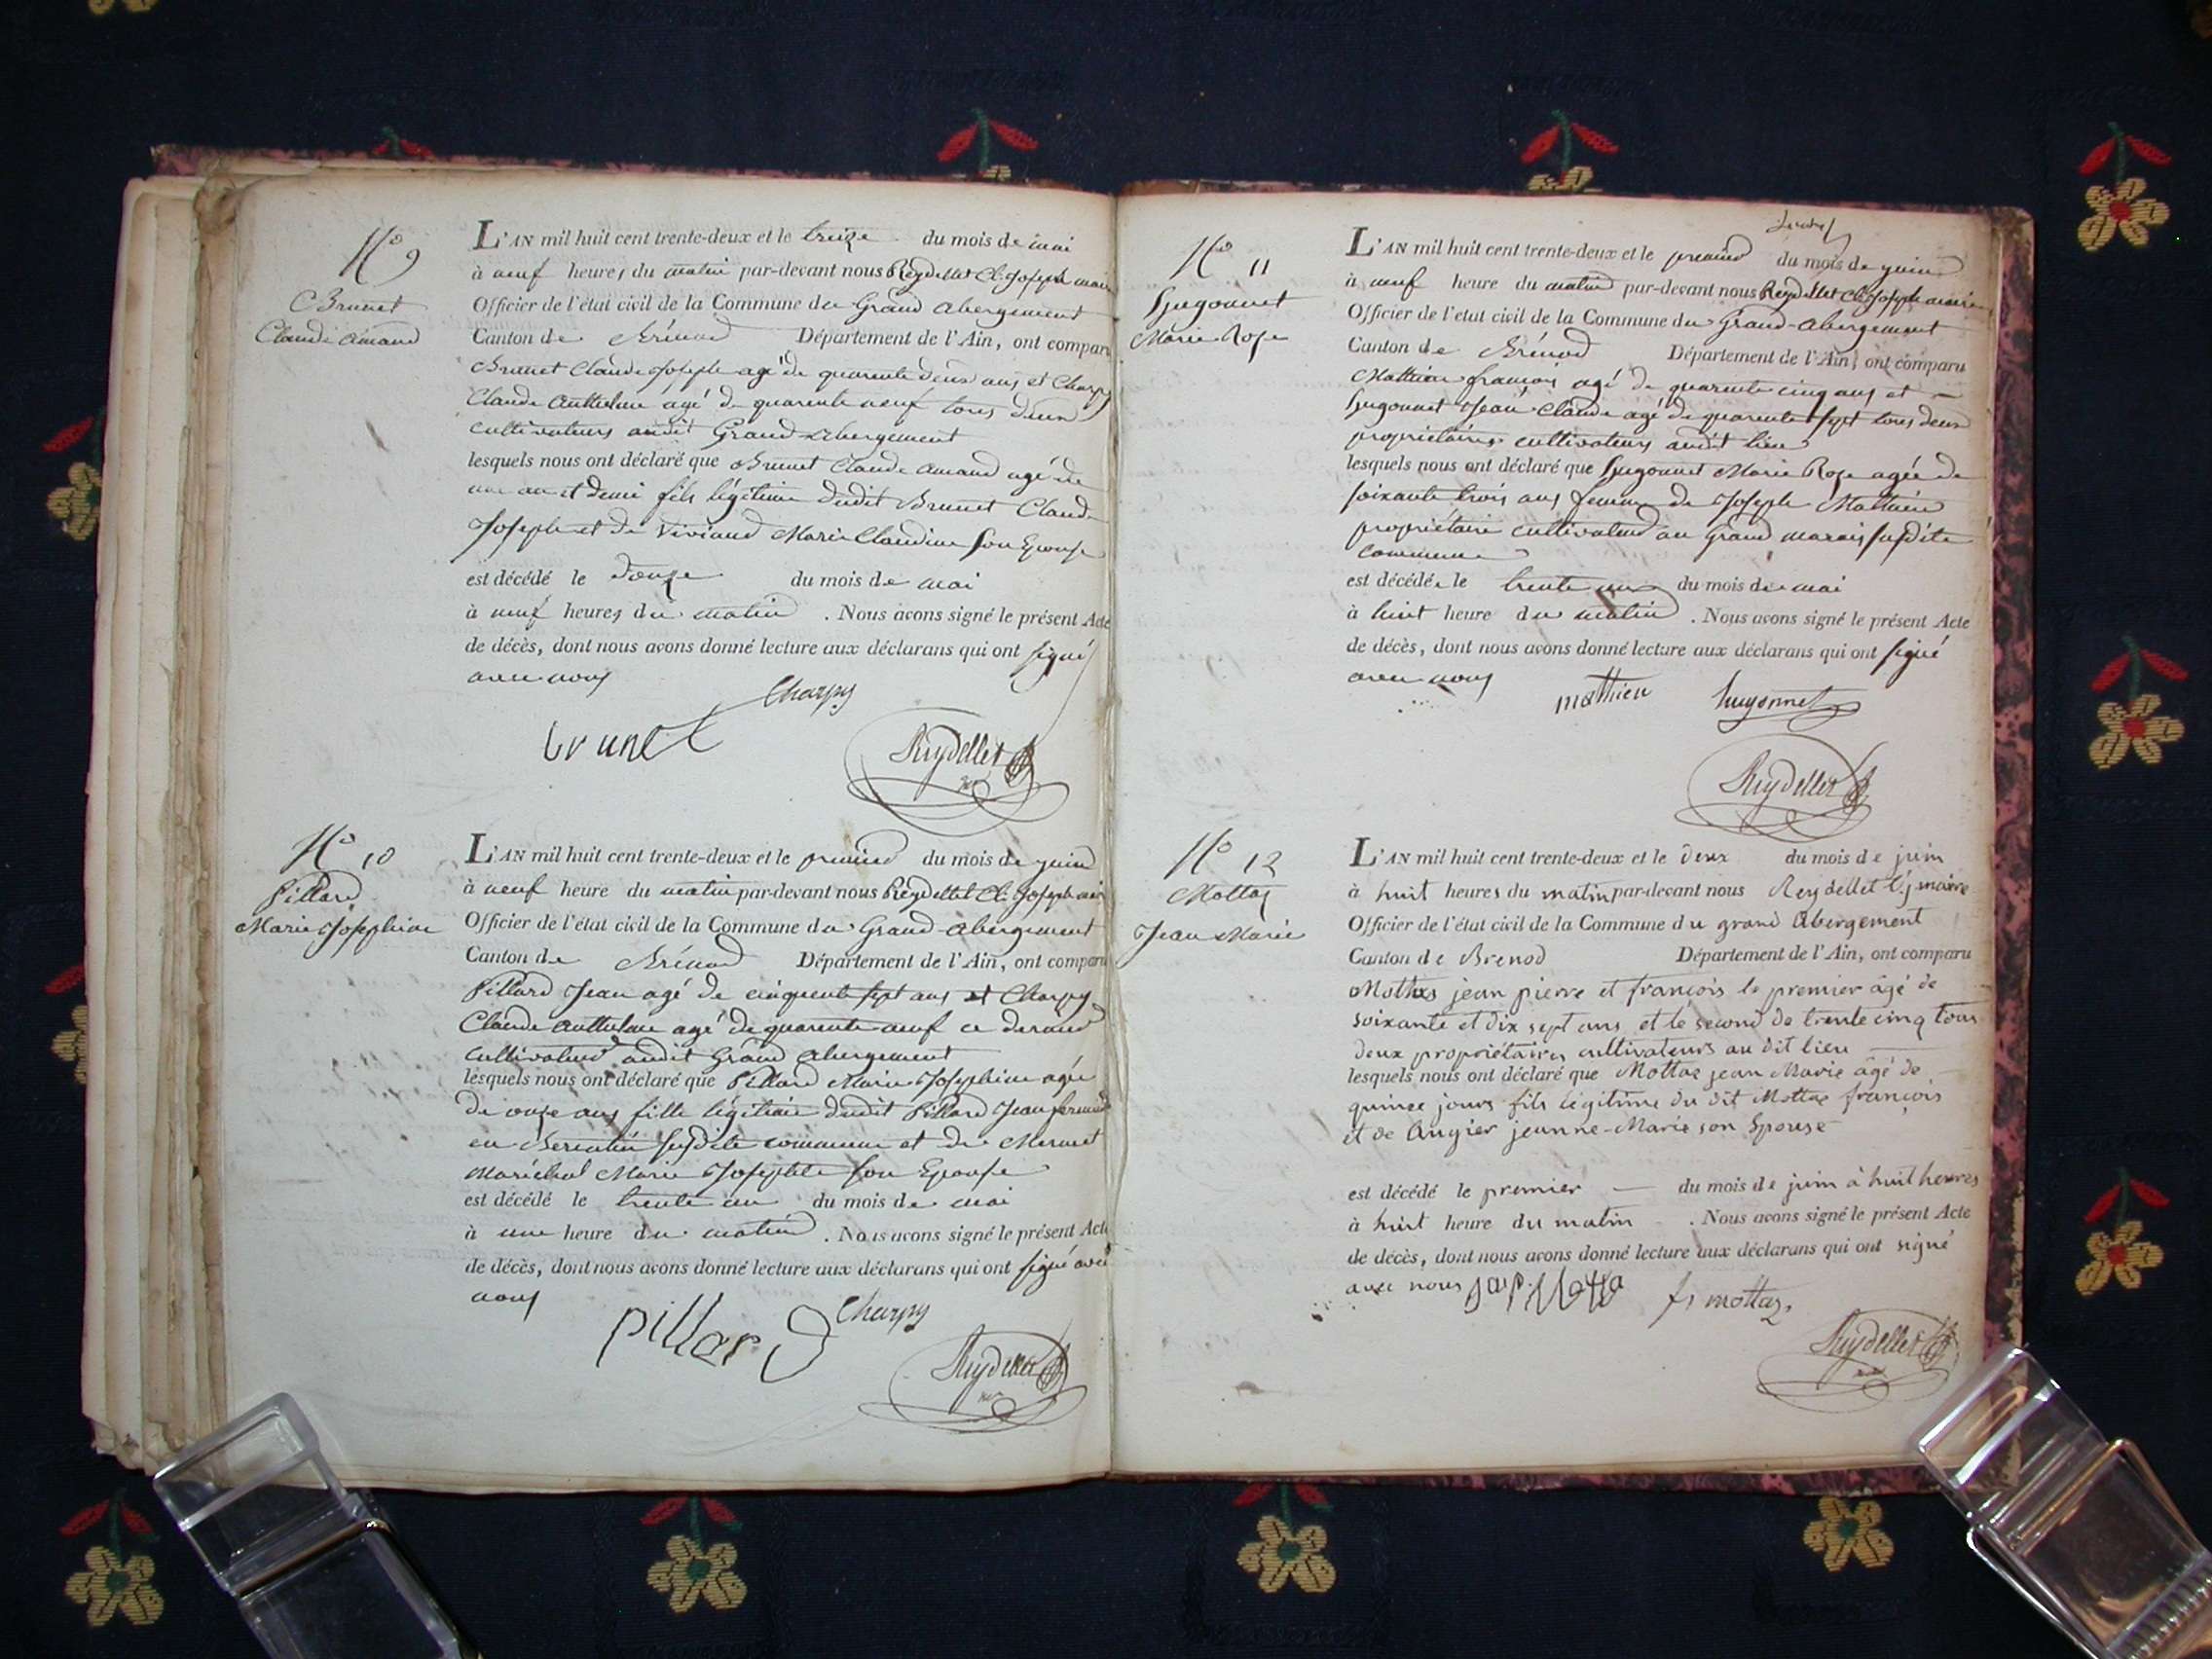 N° 9
Brunet
Claude Amand
L'AN mil huit cent trente-deux et le treize du mois de mai
à neuf heures du matin par-devant nous Reydellet Cl. Joseph maire
Officier de l'état civil de la Commune du Grand abergement
Canton de Brénod Département de l'Ain, ont comparu
Brunet Claude Joseph agé de quarente deux ans et Charpy
Claude Anthelme agé de quarente neuf tous deux
cultivateurs audit Grand abergement
lesquels nous ont déclaré que Brunet Claude amand agé de
une an et demi fils légitime dudit Brunet Claude
Joseph et de Viviand Marie Claudine son Epouse
est décédé le douze du mois de mai
à neuf heures du matin . Nous avons signé le présent Acte
de décès, dont nous avons donné lecture aux déclarans qui ont signé
avec nous
Charpy
brunet
Reydellet
N° 10
Pillard
Marie Josephine
L'AN mil huit cent trente-deux et le premier du mois de juin
à neuf heure du matin par-devant nous Reydellet Cl. Joseph maire
Officier de l'état civil de la Commune du Grand-abergement
Canton de Brénod Département de l'Ain, ont comparu
Pillard Jean agé de cinquente sept ans et Charpy
Claude Anthelme agé de quarente neuf ce dernier
cultivateur audit Grand abergement
lesquels nous ont déclaré que Pillard Marie Josephine agée
de onze ans fille légitime dudit Pillard Jean fermier
en susdite commune et de Mermet
maréchal Marie Josephte son Epouse
est décédé le trente un du mois de mai
à une heure du matin . Nous avons signé le présent Acte
de décès, dont nous avons donné lecture aux déclarans qui ont signé avec
nous
pillard
Charpy
Reydellet
N° 11
Hugonnet
Marie Rose
L'AN mil huit cent trente-deux et le premier du mois de juin
à neuf heure du matin par-devant nous Reydellet Cl. Joseph maire
Officier de l'état civil de la Commune du Grand-abergement
Canton de Brénod Département de l'Ain, ont comparu
Matthieu françois agé de quarente cinq ans et
hugonnet Jean Claude agé de quarente sept tous deux
propriétaires cultivateurs audit lieu
lesquels nous ont déclaré que hugonnet Marie Rose agée de
soixante trois ans femme de Joseph Matthieu
propriétaire cultivateur au Grand marais susdite
commune
est décédée le trente un du mois de mai
à huit heure du matin . Nous avons signé le présent Acte
de décès, dont nous avons donné lecture aux déclarans qui ont signé
avec nous
mathieu
hugonnet
Reydellet
N° 12
Mottaz
Jean Marie
L'AN mil huit cent trente-deux et le deux du mois de juin
à huit heures du matin par-devant nous Reydellet C. j maire
Officier de l'état civil de la Commune du grand Abergement
Canton de Brenod Département de l'Ain, ont comparu
Mottas jean pierre et françois le premier âgé de
soixante et dix sept ans et le second de trente cinq tous
deux propriétaires cultivateurs au dit lieu
lesquels nous ont déclaré que Mottaz jean Marie âgé de
quinze jours fils légitime du dit Mottaz françois
et de Augier jeanne-Marie son Epouse
est décédé le premier du mois de juin à huit heures
à huit heure du matin . Nous avons signé le présent Acte
de décès, dont nous avons donné lecture aux déclarans qui ont signé
avec nous
fs mottaz
Reydellet